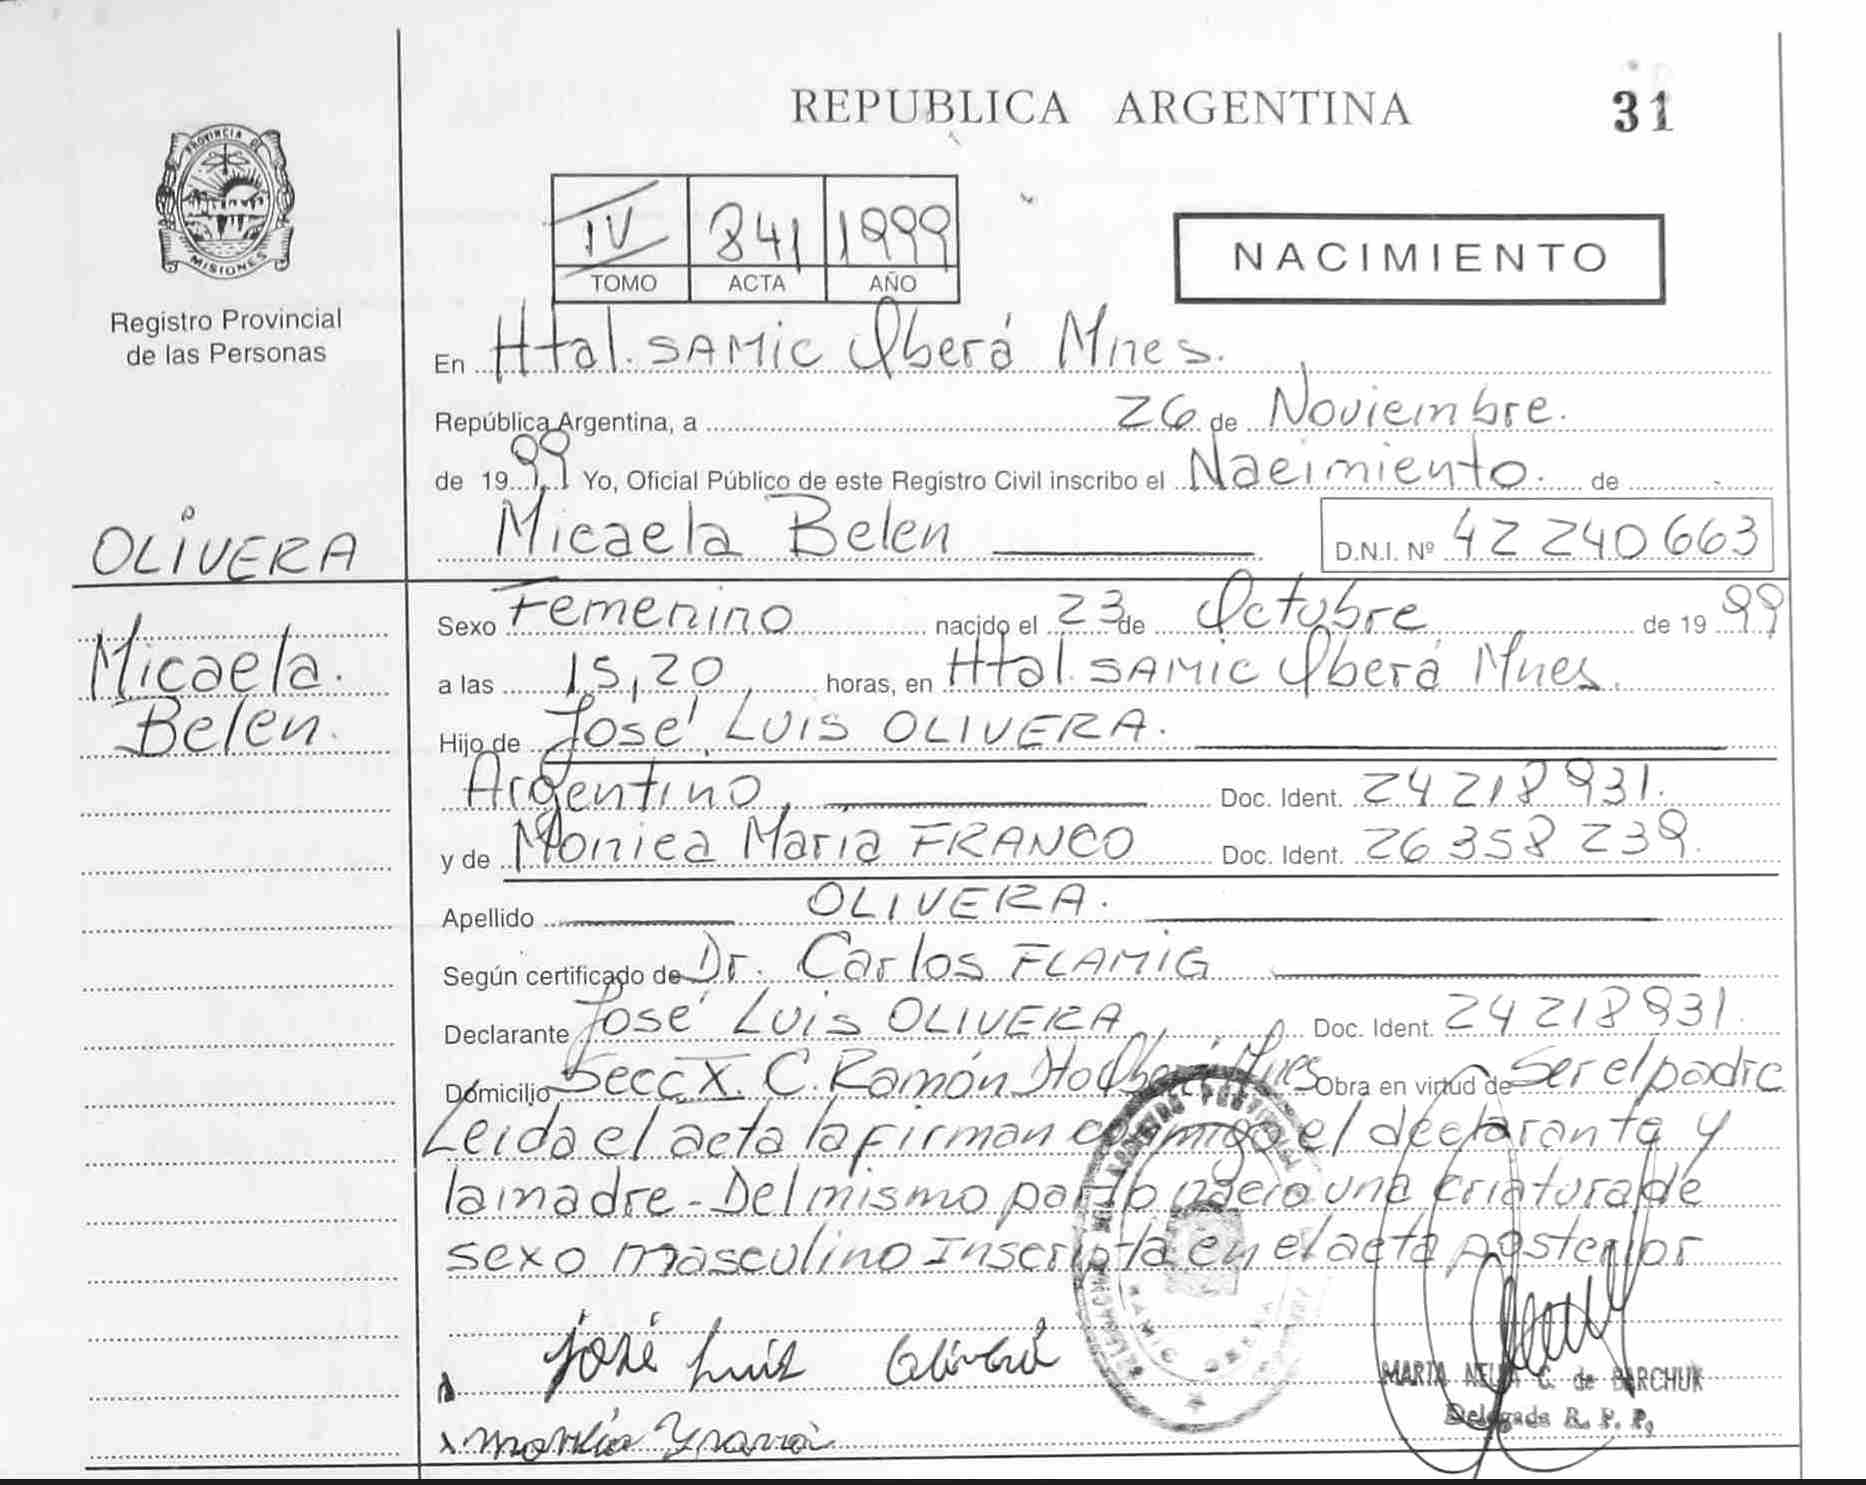 REPUBLICA ARGENTINA
31
PROVINCIA DE
MISIONES
Registro Provincial
de las Personas
IV 841 1999
TOMO ACTA AÑO
NACIMIENTO
En Htal. SAMIC Oberá Mnes.
República Argentina, a 26 de Noviembre.
de 1999 Yo, Oficial Público de este Registro Civil inscribo el Nacimiento. de
Micaela Belen D.N.I. Nº 42 240 663
OLIVERA
Micaela.
Belen.
Sexo Femenino nacido el 23 de Octubre de 1999
a las 15,20 horas, en Htal. SAMIC Oberá Mnes.
Hijo de José LUIS OLIVERA.
Argentino, Doc. Ident. 24 218 931.
y de Monica Maria FRANCO Doc. Ident. 26 358 239.
Apellido OLIVERA.
Según certificado de Dr. Carlos FLAMIG
Declarante José Luis OLIVERA Doc. Ident. 24 218 931.
Domicilio Secc X. C. Ramón Oberá Mnes Obra en virtud de Ser el padre
Leida el acta la firman conmigo el declarante y
la madre - Del mismo parto nacio una criatura de
sexo masculino Inscripta en el acta posterior
José Luis Olivera
MARTA C. de BARCHUK
Delegada R. P. P.